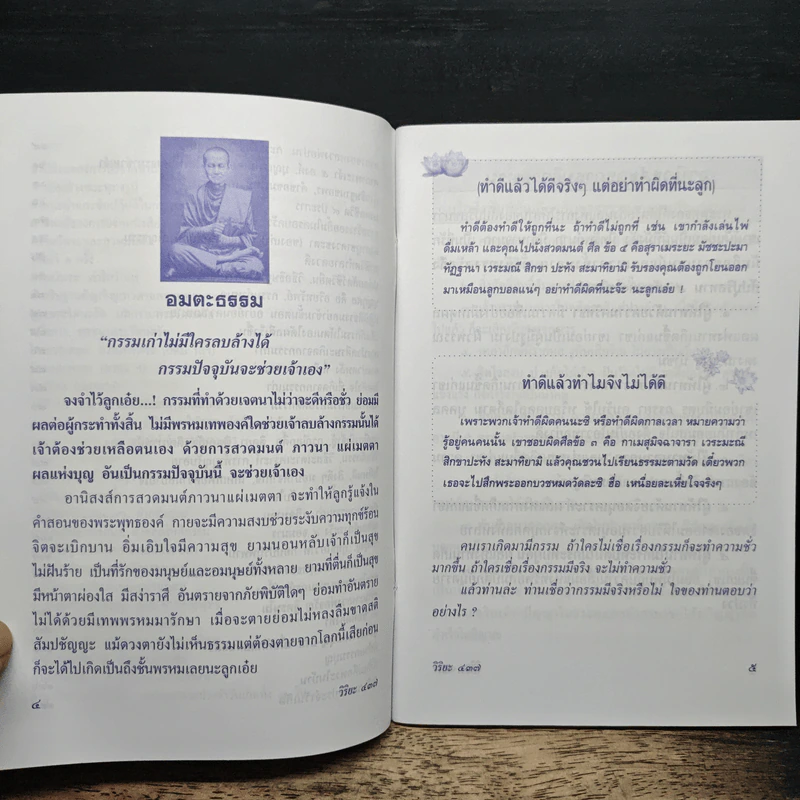 อมตะธรรม
“กรรมเก่าไม่มีใครลบล้างได้
กรรมปัจจุบันจะช่วยเจ้าเอง”
จงจำไว้ลูกเอ๋ย...! กรรมที่ทำด้วยเจตนาไม่ว่าจะดีหรือชั่ว ย่อมมี
ผลต่อผู้กระทำทั้งสิ้น ไม่มีพรหมเทพองค์ใดช่วยเจ้าลบล้างกรรมนั้นได้
เจ้าต้องช่วยเหลือตนเอง ด้วยการสวดมนต์ ภาวนา แผ่เมตตา
ผลแห่งบุญ อันเป็นกรรมปัจจุบันนี้ จะช่วยเจ้าเอง
อานิสงส์การสวดมนต์ภาวนาแผ่เมตตา จะทำให้ลูกรู้แจ้งใน
คำสอนของพระพุทธองค์ กายจะมีความสงบช่วยระงับความทุกข์ร้อน
จิตจะเบิกบาน อิ่มเอิบใจมีความสุข ยามนอนหลับเจ้าก็เป็นสุข
ไม่ฝันร้าย เป็นที่รักของมนุษย์และอมนุษย์ทั้งหลาย ยามที่ตื่นก็เป็นสุข
มีหน้าตาผ่องใส มีสง่าราศี อันตรายจากภัยพิบัติใดๆ ย่อมทำอันตราย
ไม่ได้ด้วยมีเทพพรหมมารักษา เมื่อจะตายย่อมไม่หลงลืมขาดสติ
สัมปชัญญะ แม้ดวงตายังไม่เห็นธรรมแต่ต้องตายจากโลกนี้เสียก่อน
ก็จะได้ไปเกิดเป็นถึงชั้นพรหมเลยนะลูกเอ๋ย
๔
วิริยะ ๔๓๗
(ทำดีแล้วได้ดีจริงๆ แต่อย่าทำผิดที่นะลูก)
ทำดีต้องทำดีให้ถูกที่นะ ถ้าทำดีไม่ถูกที่ เช่น เขากำลังเล่นไพ่
ดื่มเหล้า และคุณไปนั่งสวดมนต์ ศีล ข้อ ๕ คือสุราเมระยะ มัชชะปะมา
ทัฏฐานา เวระมณี สิกขา ปะทัง สะมาทิยามิ รับรองคุณต้องถูกโยนออก
มาเหมือนลูกบอลแน่ๆ อย่าทำดีผิดที่นะจ๊ะ นะลูกเอ๋ย !
ทำดีแล้วทำไมจึงไม่ได้ดี
เพราะพวกเจ้าทำดีผิดคนนะซิ หรือทำดีผิดกาลเวลา หมายความว่า
รู้อยู่คนคนนั้น เขาชอบผิดศีลข้อ ๓ คือ กาเมสุมิจฉาจารา เวระมะณี
สิกขาปะทัง สะมาทิยามิ แล้วคุณชวนไปเรียนธรรมะตามวัด เดี๋ยวพวก
เธอจะไปสึกพระออกบวชหมดวัดละซิ ฮื่อ เหนื่อยละเหี่ยใจจริงๆ
คนเราเกิดมามีกรรม ถ้าใครไม่เชื่อเรื่องกรรมก็จะทำความชั่ว
มากขึ้น ถ้าใครเชื่อเรื่องกรรมมีจริง จะไม่ทำความชั่ว
แล้วท่านล่ะ ท่านเชื่อว่ากรรมมีจริงหรือไม่ ใจของท่านตอบว่า
อย่างไร ?
วิริยะ ๔๓๗
๕